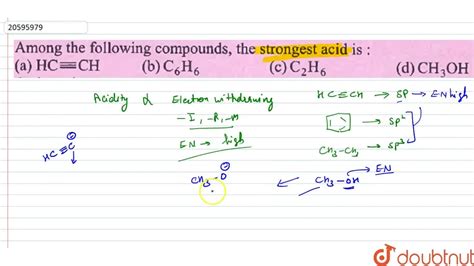 20595979
Among the following compounds, the strongest acid is :
(a) HC≡CH (b) C₆H₆ (c) C₂H₆ (d) CH₃OH
Acidity ∝ Electron withdrawing
-I, -R, -M
EN → high
HC≡CH → SP → EN high
→ SP²
CH₃-CH₃ → SP³
HC≡C⊖
CH₃-O⊖
CH₃-OH → EN
doubtnut